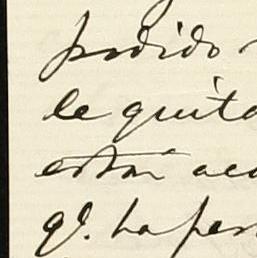 pedido
le quita
están aca
qᵉ. ha per